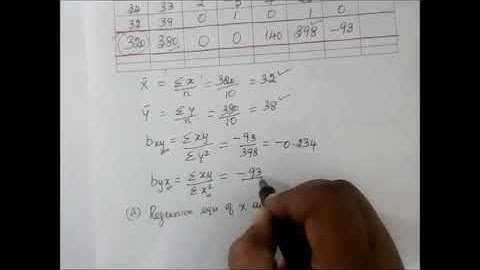 32 39 0 1 0 1 0
320 380 0 0 140 398 -93
x̄ = Σx/n = 320/10 = 32
ȳ = Σy/n = 380/10 = 38
bxy = Σxy/Σy² = -93/398 = -0.234
byx = Σxy/Σx² = -93
(A) Regression eqn of x